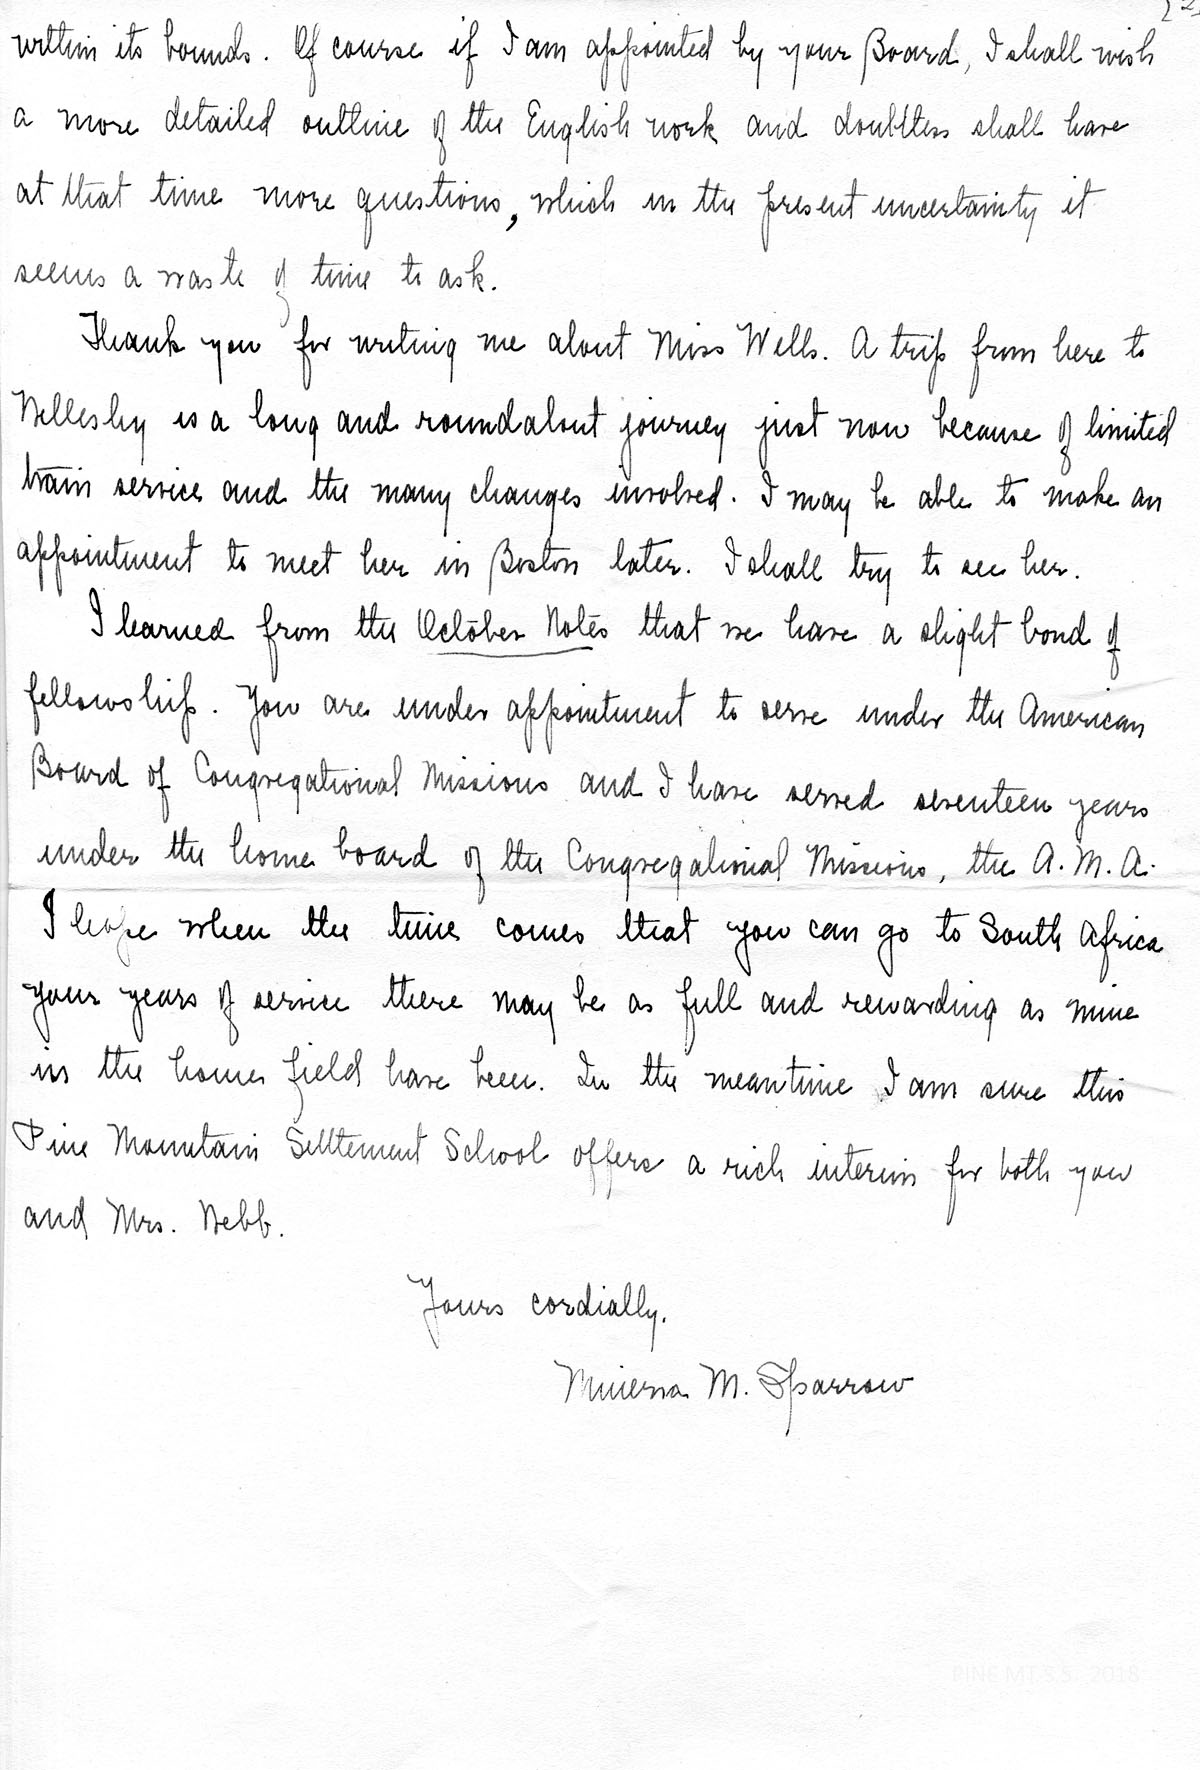 [2]
within its bounds. Of course if I am appointed by your Board, I shall wish
a more detailed outline of the English work and doubtless shall have
at that time more questions, which in the present uncertainty it
seems a waste of time to ask.
Thank you for writing me about Miss Wells. A trip from here to
Wellesley is a long and roundabout journey just now because of limited
train service and the many changes involved. I may be able to make an
appointment to meet her in Boston later. I shall try to see her.
I learned from the October Notes that we have a slight bond of
fellowship. You are under appointment to serve under the American
Board of Congregational Missions and I have served seventeen years
under the home board of the Congregational Missions, the A. M. A.
I hope when the time comes that you can go to South Africa
your years of service there may be as full and rewarding as mine
in the home field have been. In the meantime I am sure this
Pine Mountain Settlement School offers a rich interim for both you
and Mrs. Webb.
Yours cordially,
Minerva M. Sparrow
PINE MT S.S. 2018